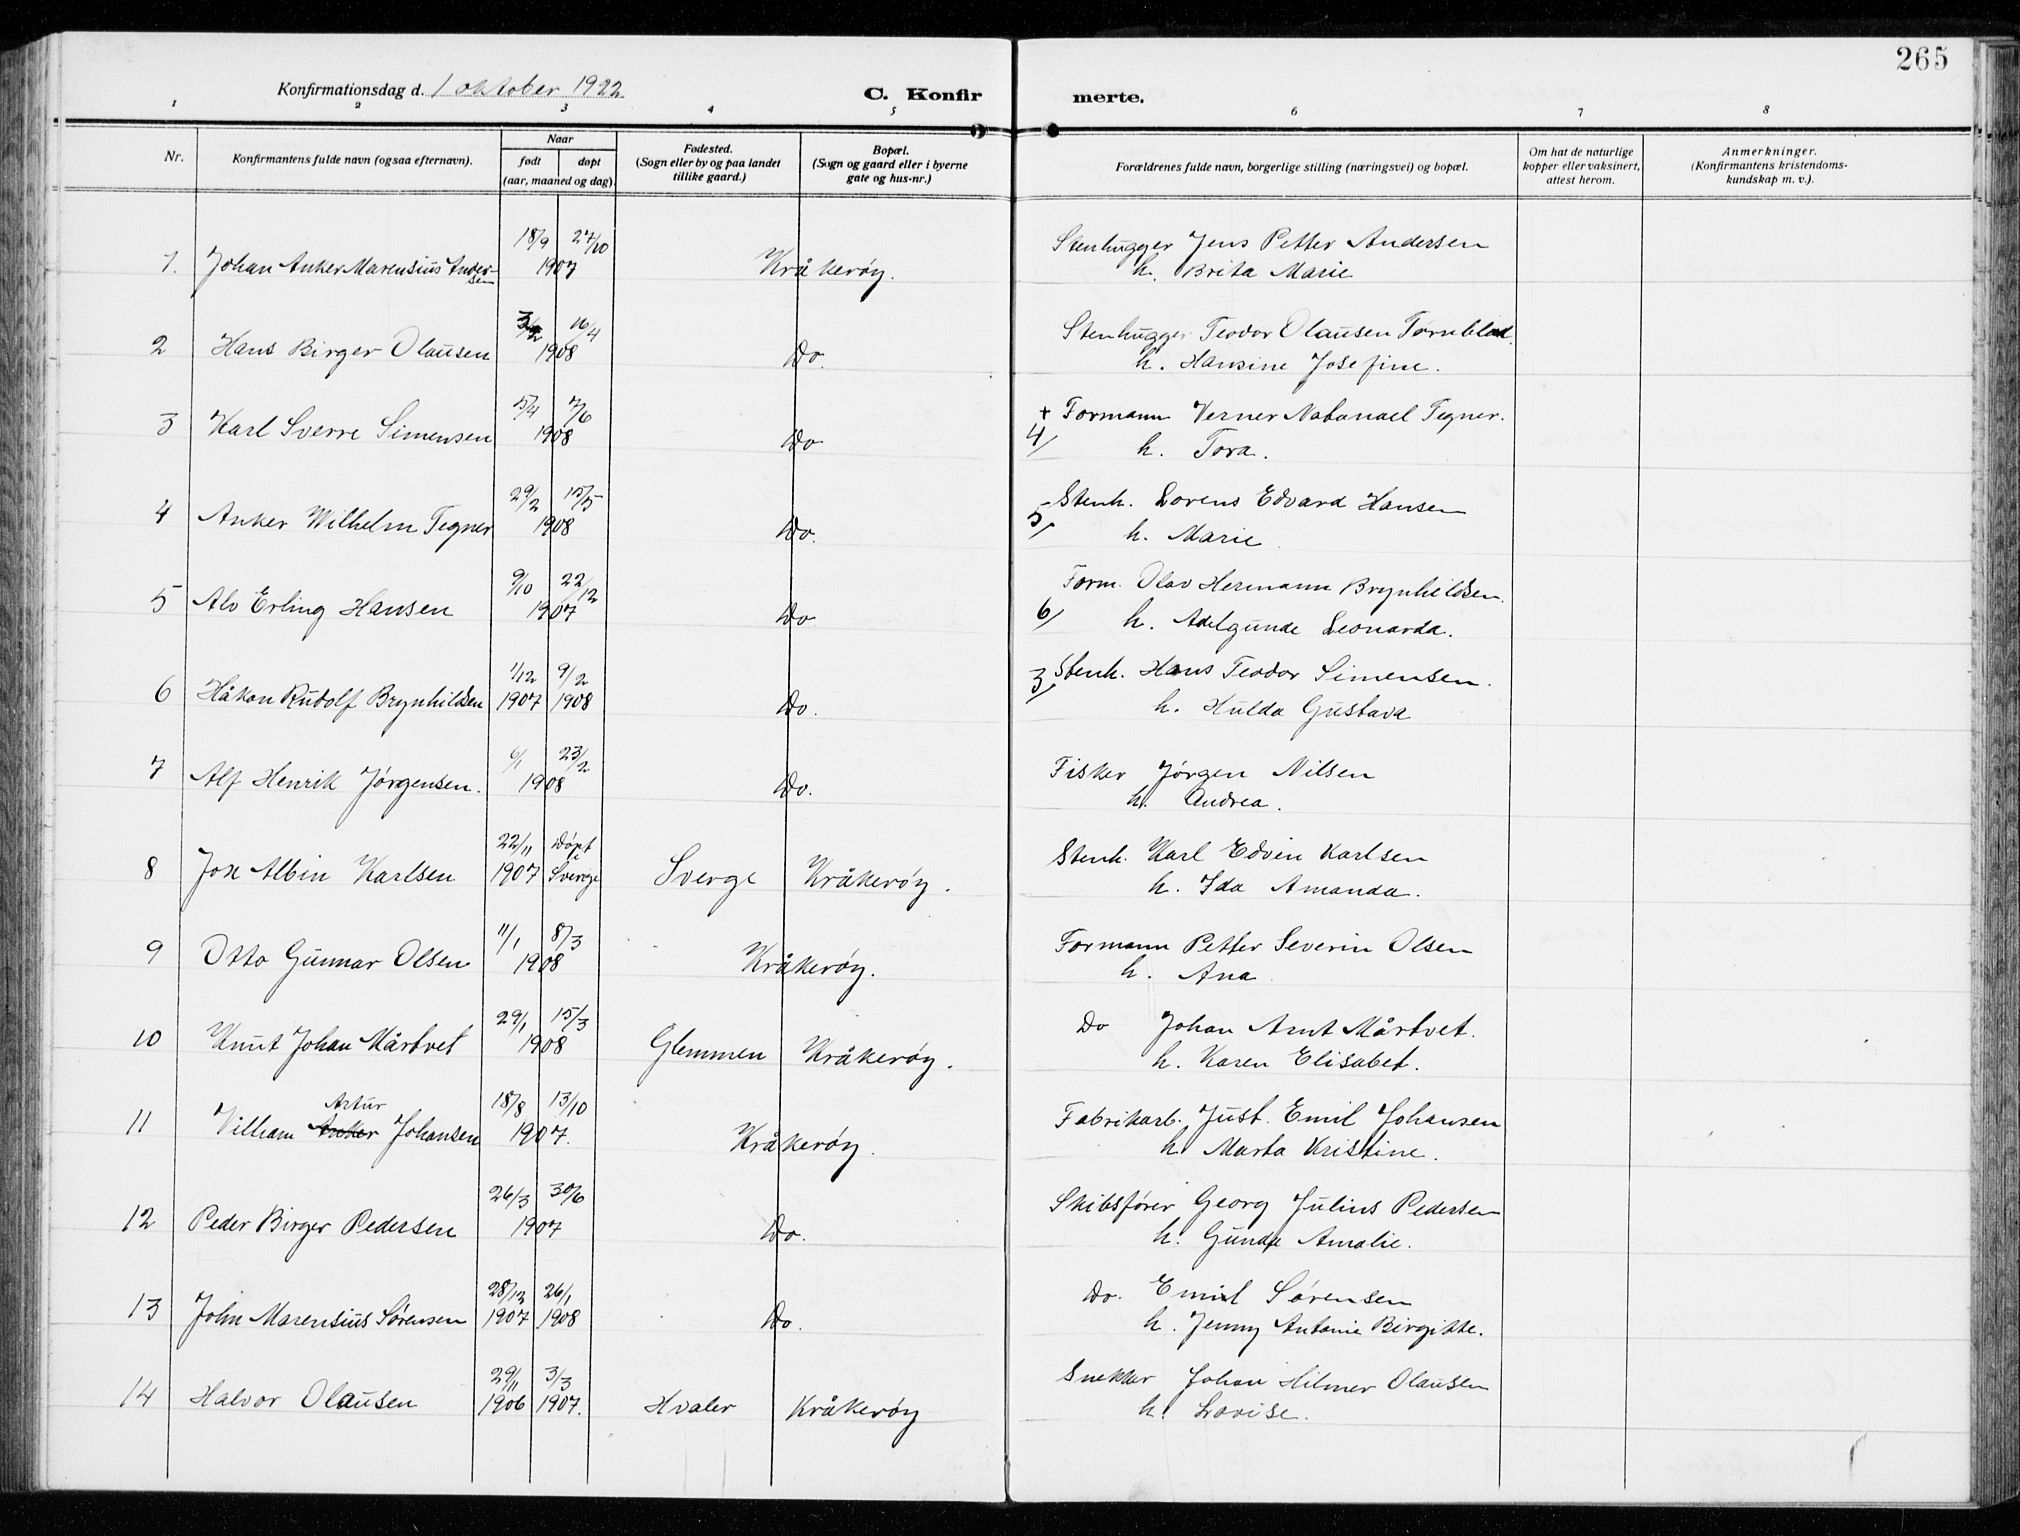 265
Konfirmationsdag d. 1 oktober 1922
C. Konfirmerte.
1 2 3 4 5 6 7 8
Nr.
Konfirmantens fulde navn (ogsaa efternavn).
Naar
født døpt
(aar, maaned og dag).
Fødested.
(Sogn eller by og paa landet
tillike gaard.)
Bopæl.
(Sogn og gaard eller i byerne
gate og hus-nr.)
Forældrenes fulde navn, borgerlige stilling (næringsvei) og bopæl.
Om hat de naturlige
kopper eller vaksinert,
attest herom.
Anmerkninger.
(Konfirmantens kristendoms-
kundskap m. v.).
18/9 27/10 Stenhugger Jens Petter Andersen
1. Johan Anker Marensius Ander-sen 1907 Kråkerøy. h. Brita Marie
3/2 16/4 Stenhugger Teodor Olausen Törnblad.
2 Hans Birger Olausen 1908 Do. h. Hansine Josefine.
5/4 7/6 + Formann Verner Natanael Tegner.
3 Karl Sverre Simensen 1908 Do 4/ h. Tora.
29/2 15/5 Stenh. Lorens Edvard Hansen
4 Anker Wilhelm Tegner 1908 Do. 5/ h. Marie
9/10 22/12 Form. Olav Hermann Brynhildsen.
5 Alv Erling Hansen 1907 Do 6/ h. Adelgunde Leonarda.
1/12 9/2 3/ Stenh. Hans Teodor Simensen.
6 Håkon Rudolf Brynhildsen 1907 1908 Do. h. Hulda Gustava
6/1 23/2 Fisker Jørgen Nilsen
7 Alf Henrik Jørgensen. 1908 Do. h. Andrea.
22/11 Døpt i Stenh. Karl Edvin Karlsen
8 Jon Albin Karlsen 1907 Sverge Sverge Kråkerøy. h. Ida Amanda.
11/1 8/3 Formann Petter Severin Olsen
9 Otto Gunnar Olsen 1908 Kråkerøy. h. Ana.
29/1 15/3 Do Johan Arnt Mårtvet.
10 Knut Johan Mårtvet 1908 Glemmen Kråkerøy. h. Karen Elisabet.
Artur 18/8 13/10 Fabrikarb. Just. Emil Johansen
11 Villiam Anker Johansen 1907. Kråkerøy. h. Marta Kristine.
26/3 30/6 Skibsfører Georg Julius Pedersen
12 Peder Birger Pedersen 1907 Do. h. Gunda Amalie.
28/12 26/1 Do. Emil Sørensen
13 John Marensius Sørensen 1907 1908 Do. h. Jenny Antonie Birgitte.
29/11 3/3 Snekker Johan Hilmer Olausen
14 Halvor Olausen 1906 1907. Hvaler Kråkerøy h. Lovise.